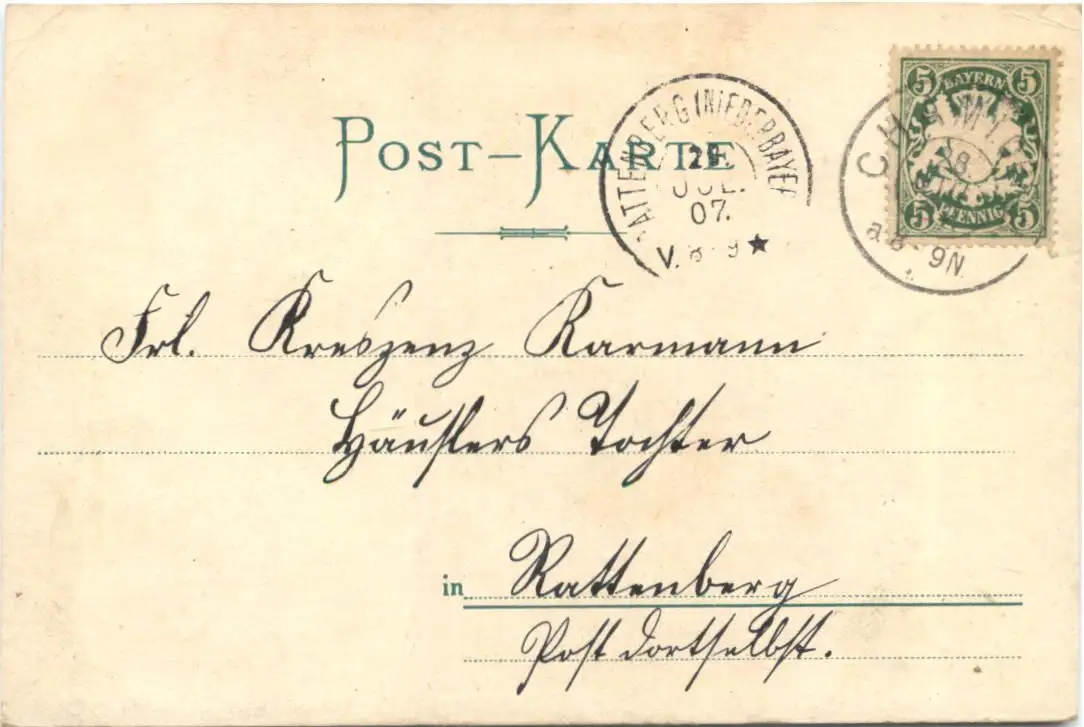 POST-KARTE
RATTENBERG (NIEDERBAYER
29
JUL.
07.
V. 8-9 ★
5 BAYERN 5
5 PFENNIG 5
CHAM
28.
9N.
Frl. Kreszenz Karmann
Häuslers Tochter
in Rattenberg
Post dortselbst.